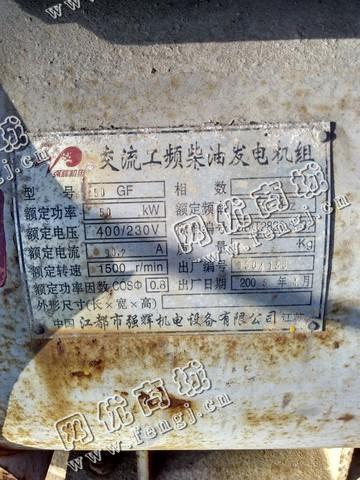 强辉机电
交流工频柴油发电机组
型 号 50 GF 相 数
额定功率 50 kW 额定频率
额定电压 400/230V
额定电流 90.2 A 量 Kg
额定转速 1500 r/min 出厂编号
额定功率因数COSΦ 0.8 出厂日期 200 年 月
外形尺寸(长×宽×高)
中国 江都市强辉机电设备有限公司 江苏
网优商城
www.fengj.com